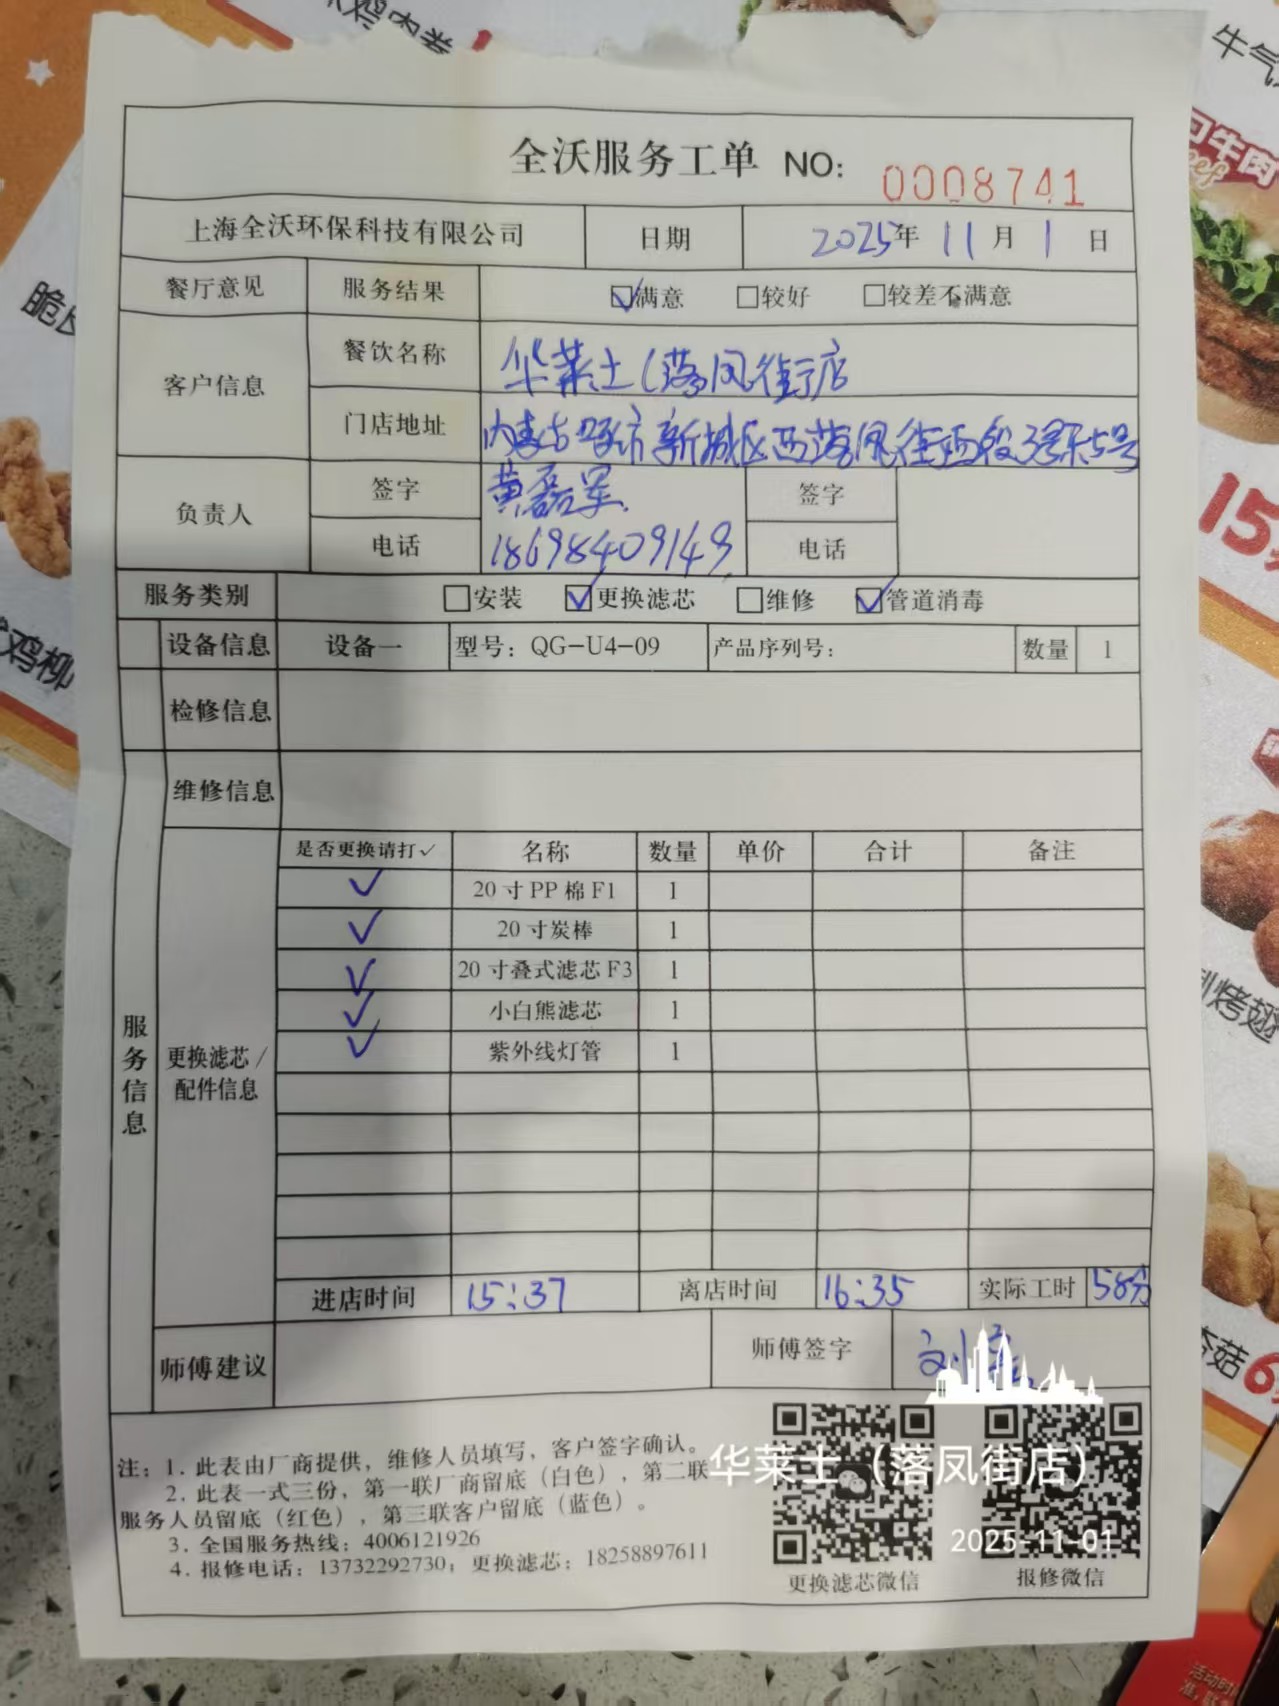 全沃服务工单 NO: 0008741
上海全沃环保科技有限公司 日期 2025年 11月 1日
餐厅意见 服务结果 ☑满意 □较好 □较差不满意
客户信息 餐饮名称 华莱士(落凤街店
门店地址 内蒙古呼市新城区西落凤街西段3号东5号
负责人 签字 黄磊军 签字
电话 18698409149 电话
服务类别 □安装 ☑更换滤芯 □维修 ☑管道消毒
设备信息 设备一 型号: QG-U4-09 产品序列号: 数量 1
检修信息
维修信息
服务信息
更换滤芯/
配件信息
是否更换请打✓ 名称 数量 单价 合计 备注
✓ 20寸PP棉F1 1
✓ 20寸炭棒 1
✓ 20寸叠式滤芯F3 1
✓ 小白熊滤芯 1
✓ 紫外线灯管 1
进店时间 15:37 离店时间 16:35 实际工时 58分
师傅建议 师傅签字
注: 1. 此表由厂商提供, 维修人员填写, 客户签字确认。
2. 此表一式三份, 第一联厂商留底(白色), 第二联
服务人员留底(红色), 第三联客户留底(蓝色)。
3. 全国服务热线: 4006121926
4. 报修电话: 13732292730; 更换滤芯: 18258897611
更换滤芯微信 报修微信
华莱士（落凤街店）
2025-11-01
牛肉
15
鸡柳
烤翅
6